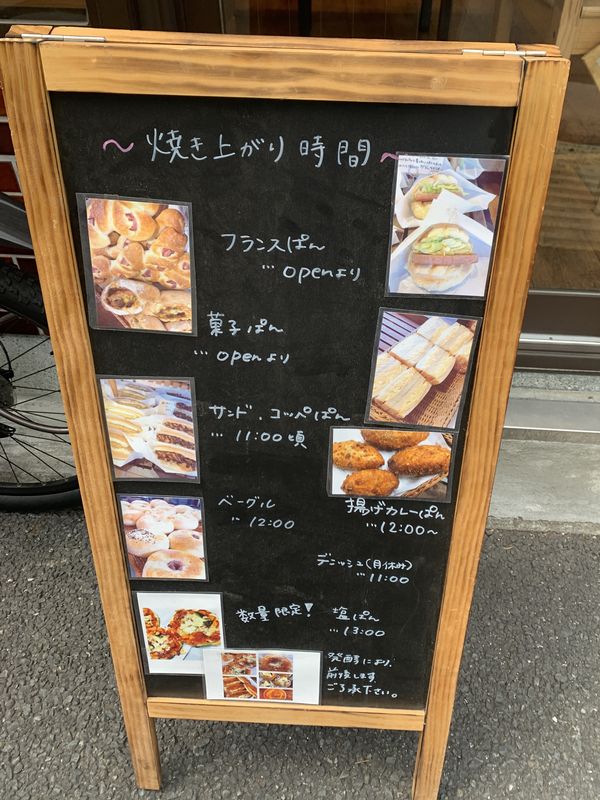 ～焼き上がり時間～
フランスぱん
… openより
菓子ぱん
… openより
サンド・コッペぱん
… 11:00頃
ベーグル
… 12:00
揚げカレーぱん
… 12:00～
デニッシュ(月休み)
… 11:00
数量限定! 塩ぱん
… 13:00
発酵により、
前後します。
ご了承下さい。